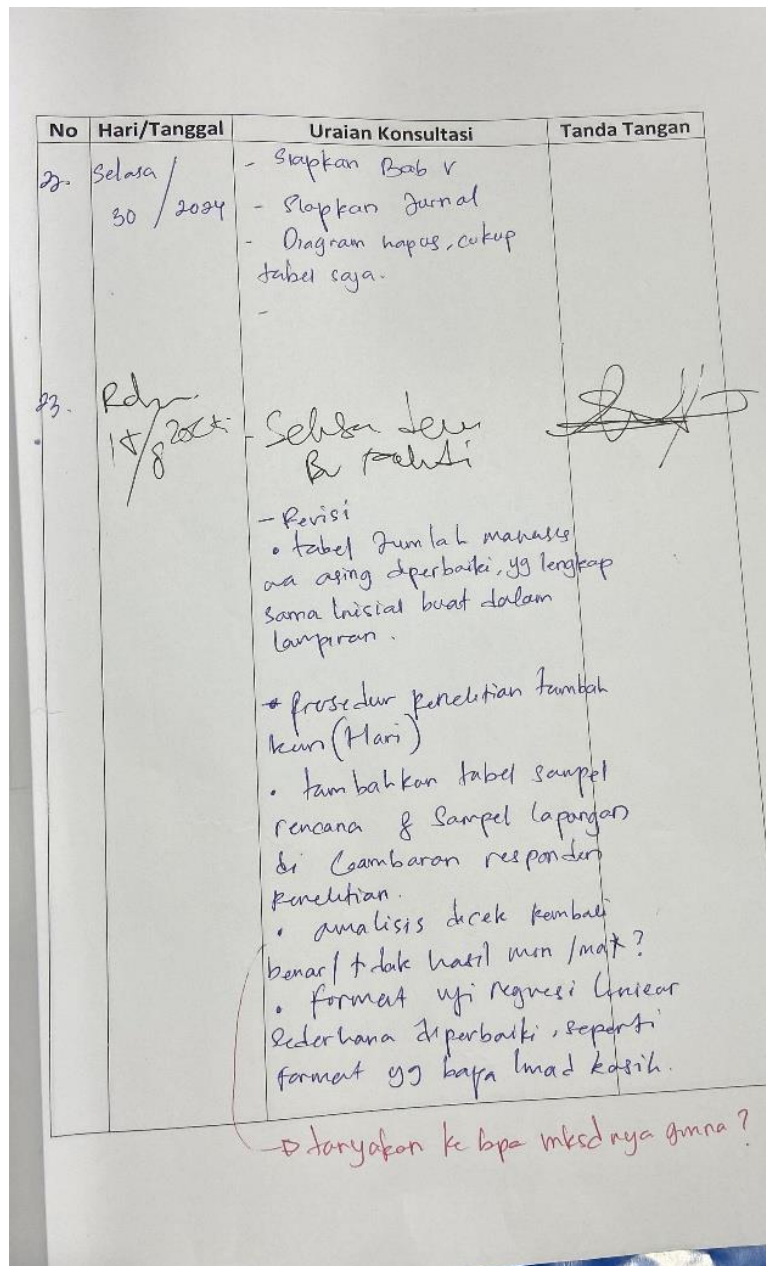 No Hari/Tanggal Uraian Konsultasi Tanda Tangan
22. Selasa / - Siapkan Bab V
30 / 2024 - Siapkan Jurnal
- Diagram hapus, cukup
tabel saja.
-
23.
- Revisi
• tabel Jumlah
asing diperbaiki, yg lengkap
sama Inisial buat dalam
Lampiran.
• Prosedur Penelitian tambah
kan (Hari)
• tambahkan tabel sampel
rencana & Sampel lapangan
di Gambaran responden
Penelitian.
• analisis dicek kembali
benar / tidak hasil min /max?
• format uji regresi Liniear
Sederhana diperbaiki, seperti
format yg bapa Imad kasih.
tanyakan ke bpa mksdnya gmna?